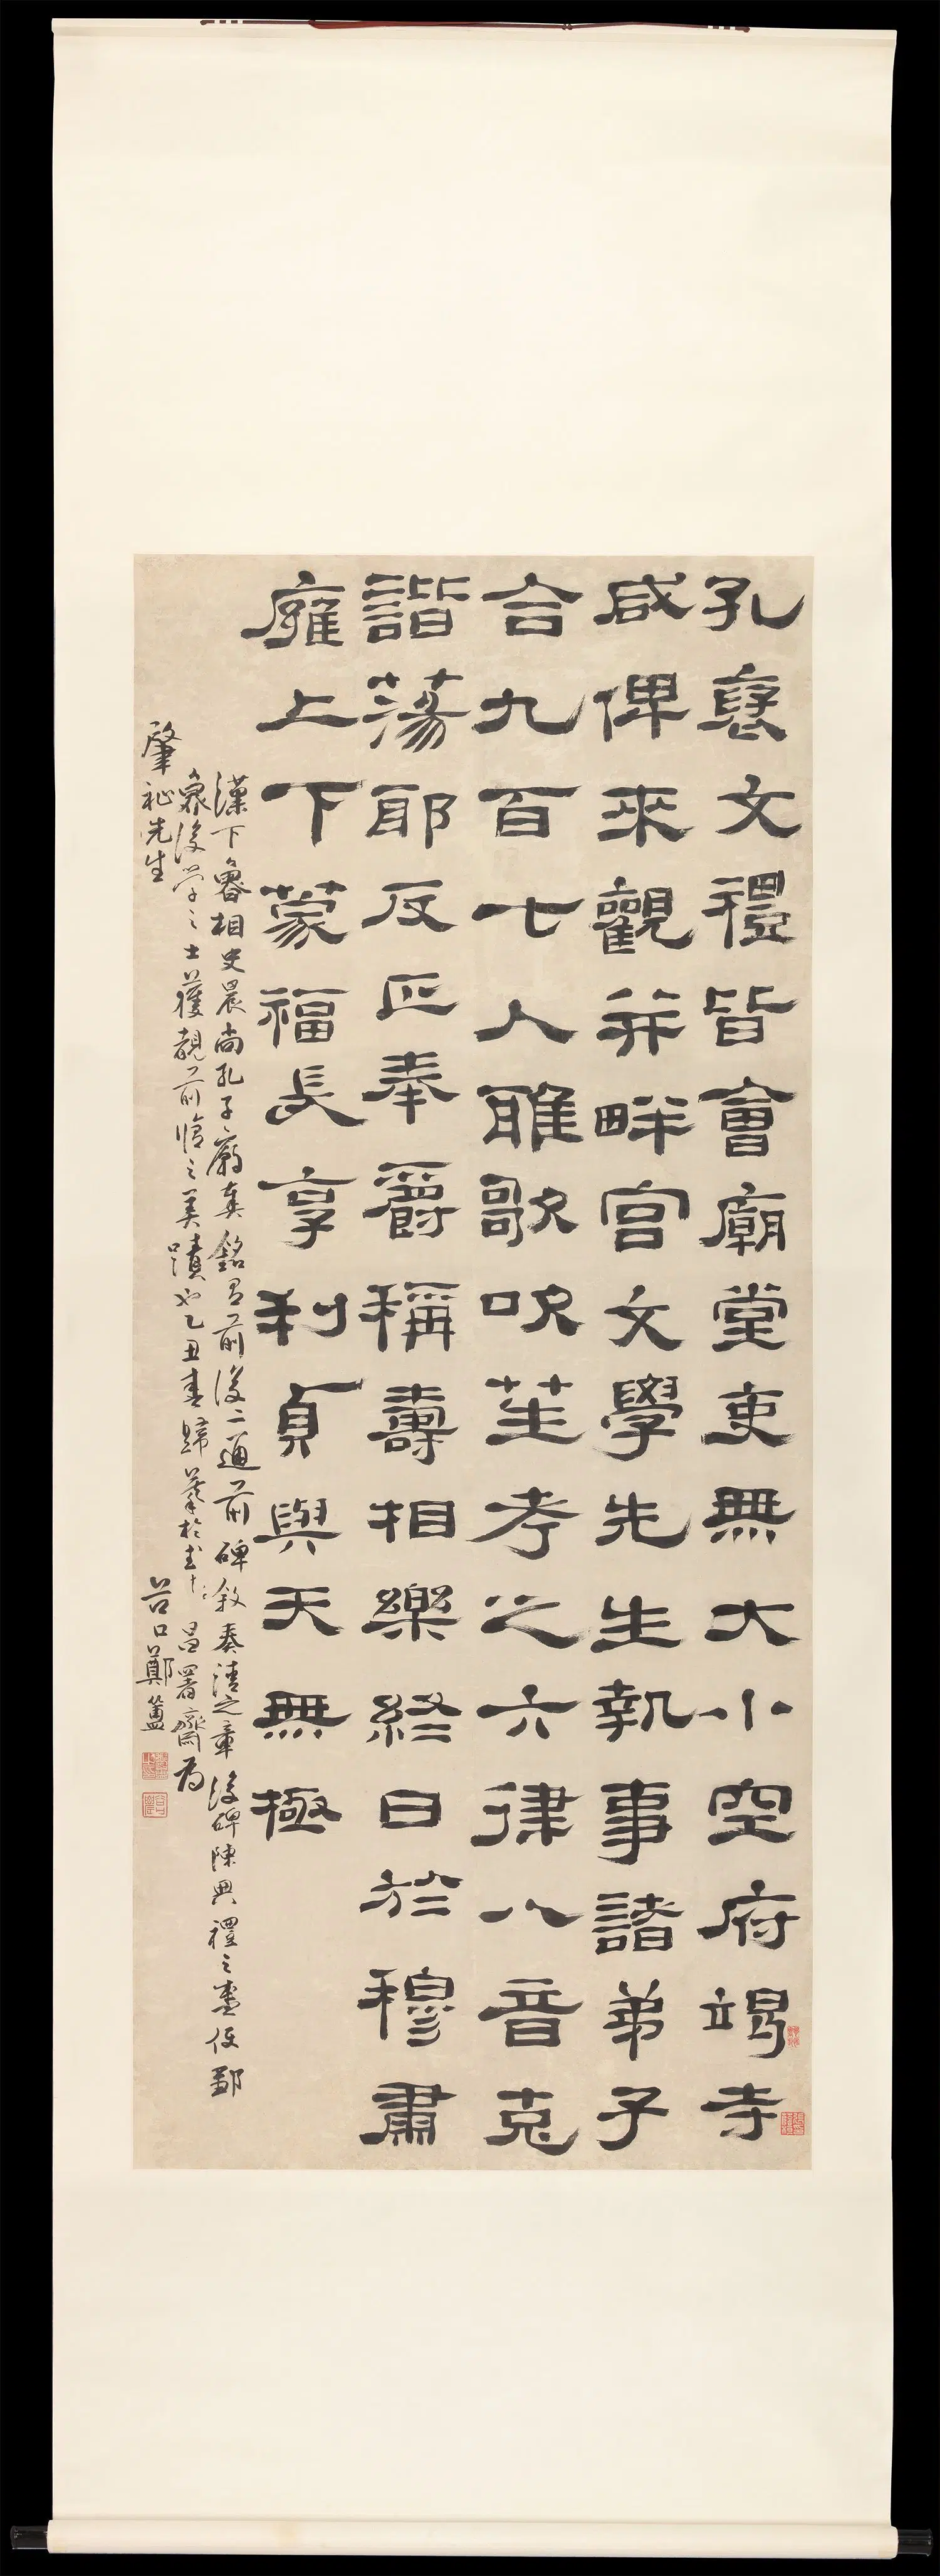 孔褱文禮皆會廟堂吏無大小空府竭寺
咸俾來觀并畔宮文學先生執事諸弟子
合九百七人雅歌吹笙考之六律八音克
諧蕩耶反正奉爵稱壽相樂終日於穆肅
廱上下蒙福長享利貞與天無極
漢下魯相史晨尚孔子廟奠銘有前後二通前碑敘奏請之章後碑陳興禮之盡使鄙
裔後學之士獲觀前脩之美蹟也乙丑春歸摹於 昌署齋為
肇祉先生 谷口鄭簠